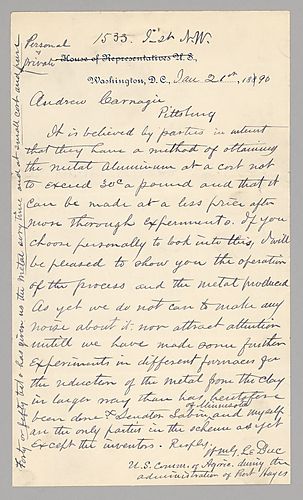 Personal
&
private
1533. I st N.W.
House of Representatives U.S.,
Washington, D.C., Jan 21st, 1890
Andrew Carnagie
Pittsburg
It is believed by parties in interest
that they have a method of obtaining
the metal aluminum at a cost not
to exceed 30c a pound and that it
can be made at a less price after
more thorough experiments. If you
choose personally to look into this, I will
be pleased to show you the operation
of the process and the metal produced
As yet we do not care to make any
noise about it. nor attract attention
untill we have made some further
Experiments in different furnaces for
the reduction of the metal from the clay
in larger way than has heretofore
been done & Senator Sabin of Minnesota and myself
are the only parties in the scheme as yet
Except the inventors. Respfy
Wm G. Le Duc
U.S. Comm. of Agric. during the
administration of Prest Hayes
has given us the metal every time and at small cost and pure